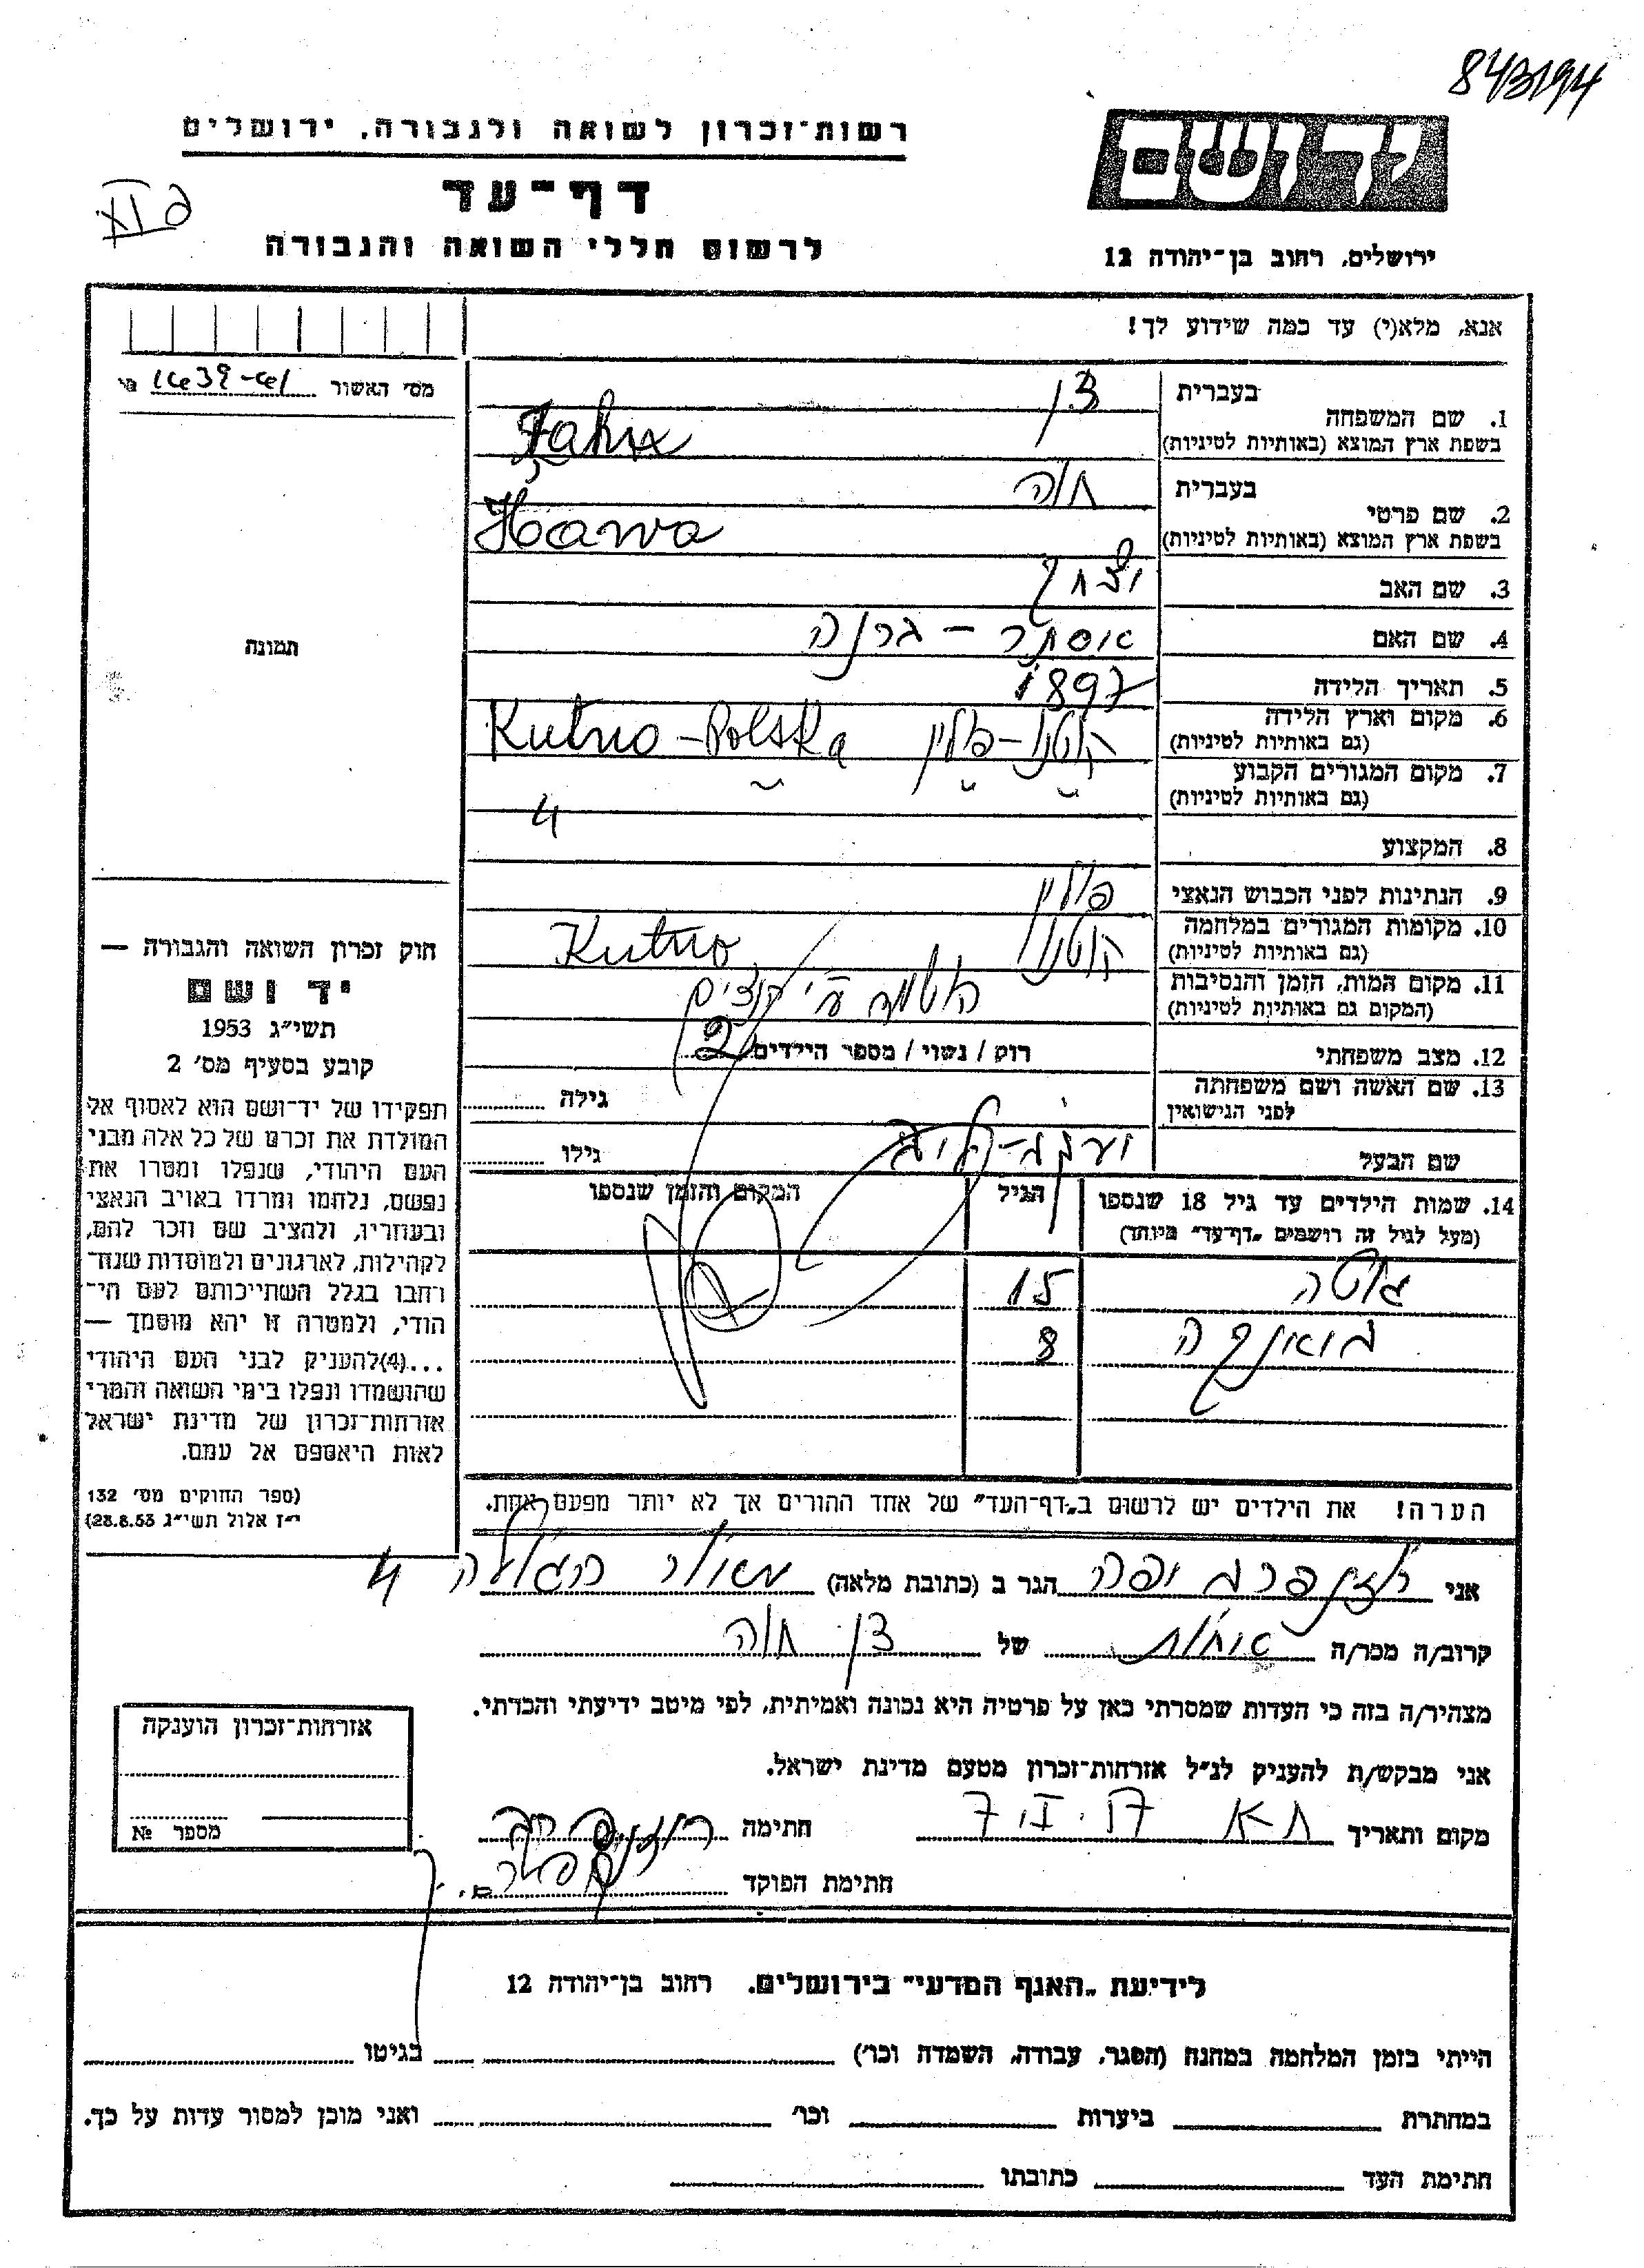 843194
רשות־זכרון לשואה ולגבורה, ירושלים
דף־עד
לרשום חללי השואה והגבורה
יד ושם
ירושלים, רחוב בן־יהודה 12
אנא, מלא(י) עד כמה שידוע לך!
מס׳ האשור
1. שם המשפחה
בעברית
בשפת ארץ המוצא (באותיות לטיניות)
2. שם פרטי
בעברית חוה
בשפת ארץ המוצא (באותיות לטיניות) Hawa
3. שם האב יצחק
4. שם האם אסתר –
5. תאריך הלידה 1897
6. מקום וארץ הלידה קוטנו - פולין Kutno - Polska
(גם באותיות לטיניות)
7. מקום המגורים הקבוע
(גם באותיות לטיניות) 4
8. המקצוע
9. הנתינות לפני הכבוש הנאצי פולין
10. מקומות המגורים במלחמה קוטנו Kutno
(גם באותיות לטיניות)
11. מקום המות, הזמן והנסיבות
(המקום גם באותיות לטיניות)
12. מצב משפחתי רוק / נשוי / מספר הילדים 2
13. שם האשה ושם משפחתה גילה
לפני הנישואין
שם הבעל גילו
14. שמות הילדים עד גיל 18 שנספו הגיל המקום והזמן שנספו
(מעל לגיל זה רושמים „דף־עד״ מיוחד)
גוטה 15
8
הערה! את הילדים יש לרשום ב„דף־העד״ של אחד ההורים אך לא יותר מפעם אחת.
תמונה
חוק זכרון השואה והגבורה —
יד ושם
תשי״ג 1953
קובע בסעיף מס׳ 2
תפקידו של יד־ושם הוא לאסוף אל
המולדת את זכרם של כל אלה מבני
העם היהודי, שנפלו ומסרו את
נפשם, נלחמו ומרדו באויב הנאצי
ובעוזריו, ולהציב שם וזכר להם,
לקהילות, לארגונים ולמוסדות שנח־
רחבו בגלל השתייכותם לעם הי־
הודי, ולמטרה זו יהא מוסמך —
...(4)להעניק לבני העם היהודי
שהושמדו ונפלו בימי השואה והמרי
אזרחות־זכרון של מדינת ישראל
לאות היאספם אל עמם.
(ספר החוקים מס׳ 132
י״ז אלול תשי״ג 28.8.53)
אני רוזנפרב יפה הגר ב (כתובת מלאה) הגולה 4
קרוב/ה מכר/ה אחות של חוה
מצהיר/ה בזה כי העדות שמסרתי כאן על פרטיה היא נכונה ואמיתית, לפי מיטב ידיעתי והכרתי.
אני מבקש/ת להעניק לנ״ל אזרחות־זכרון מטעם מדינת ישראל.
מקום ותאריך חתימה
חתימת הפוקד
אזרחות־זכרון הוענקה
מספר №
לידיעת „האגף המדעי״ בירושלים. רחוב בן־יהודה 12
הייתי בזמן המלחמה במחנה (הסגר, עבודה, השמדה וכו׳) בגיטו
במחתרת ביערות וכו׳ ואני מוכן למסור עדות על כך.
חתימת העד כתובתו